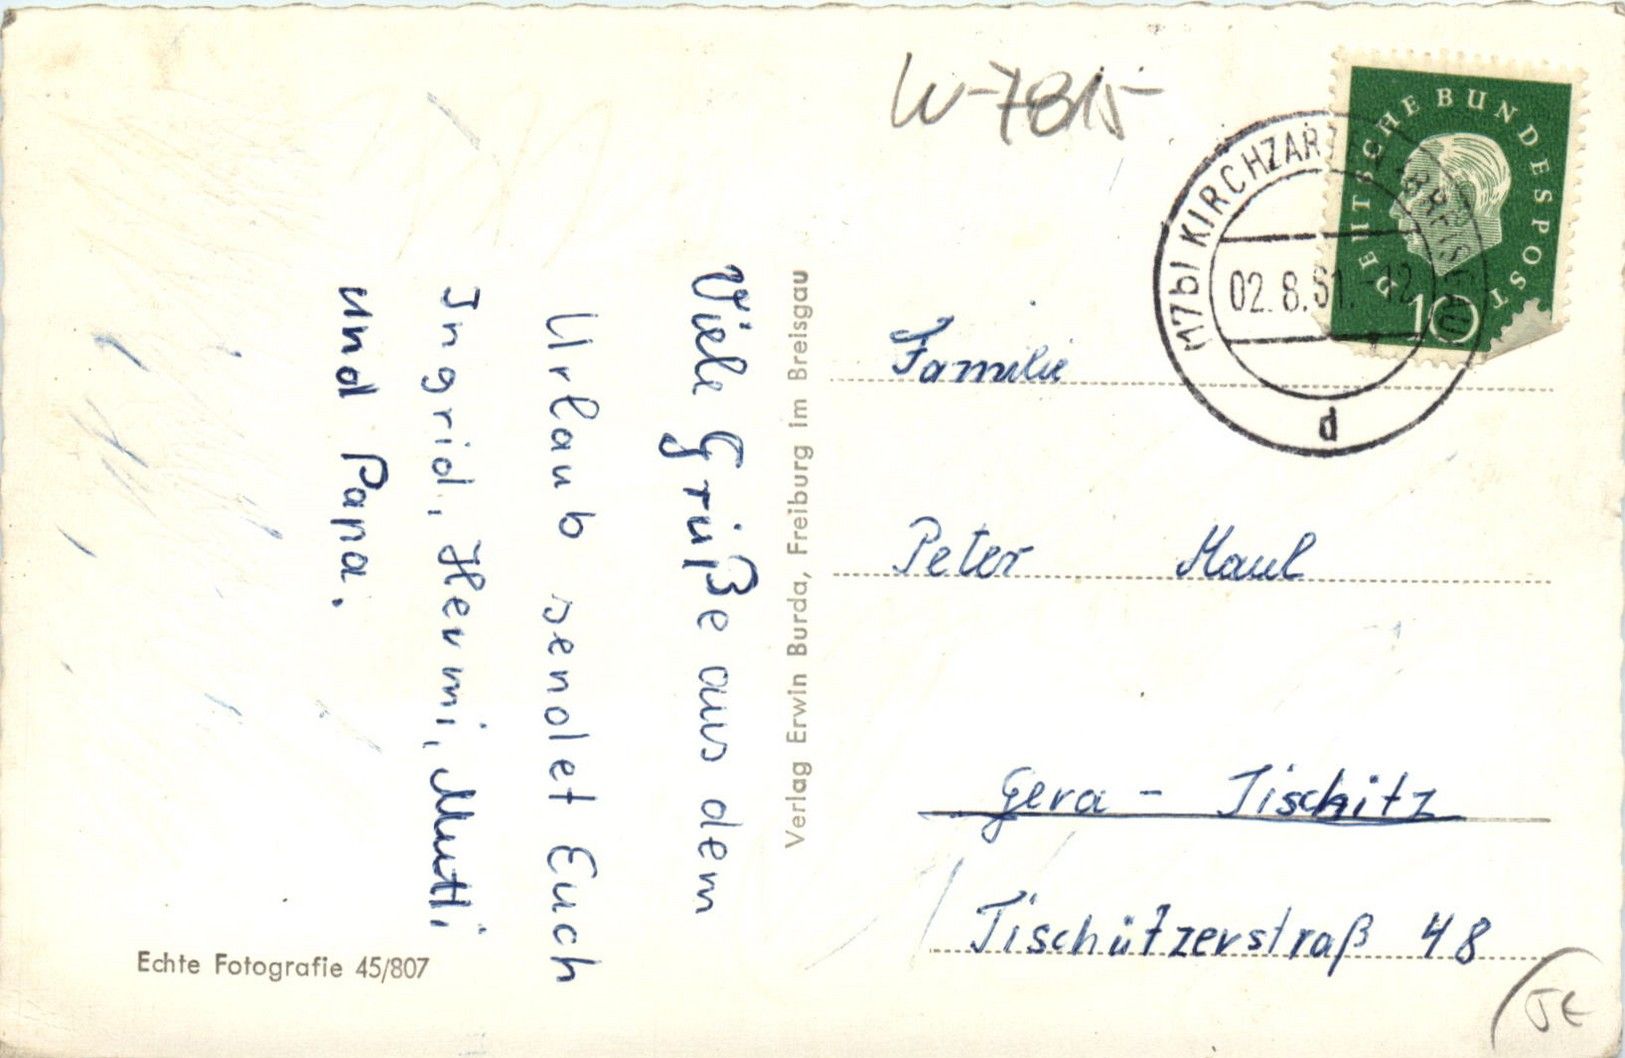 W-7815
DEUTSCHE BUNDESPOST
10
(17b) KIRCHZARTEN (BREISGAU)
02.8.61.-12
d
Familie
Peter Maul
Gera - Tischitz
Tischützerstraß 48
Verlag Erwin Burda, Freiburg im Breisgau
Viele Grüße aus dem
Urlaub sendet Euch
Ingrid, Hermi, Mutti
und Papa.
Echte Fotografie 45/807